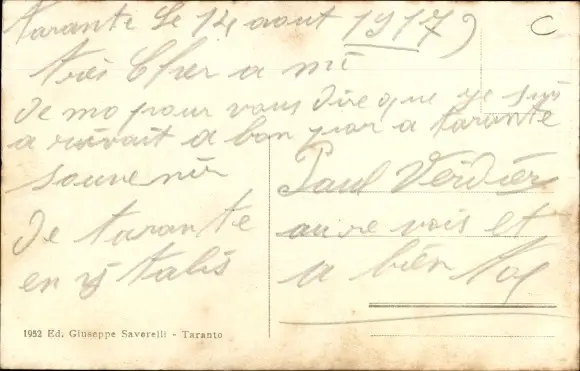 tarante Le 14 aout 1917
très Cher a mi
de mo pour vous dire que je suis
a rivait a bon por a tarante
souvenir
de tarante
en italis
Paul Verdier
au re vois et
a bien to
1952 Ed. Giuseppe Saverelli - Taranto
C